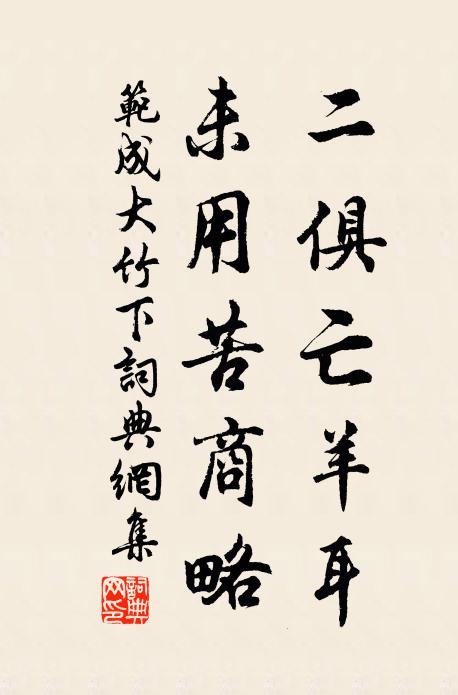 二俱亡羊耳
未用苦商略
範成大竹下詞典網集
詞典網印